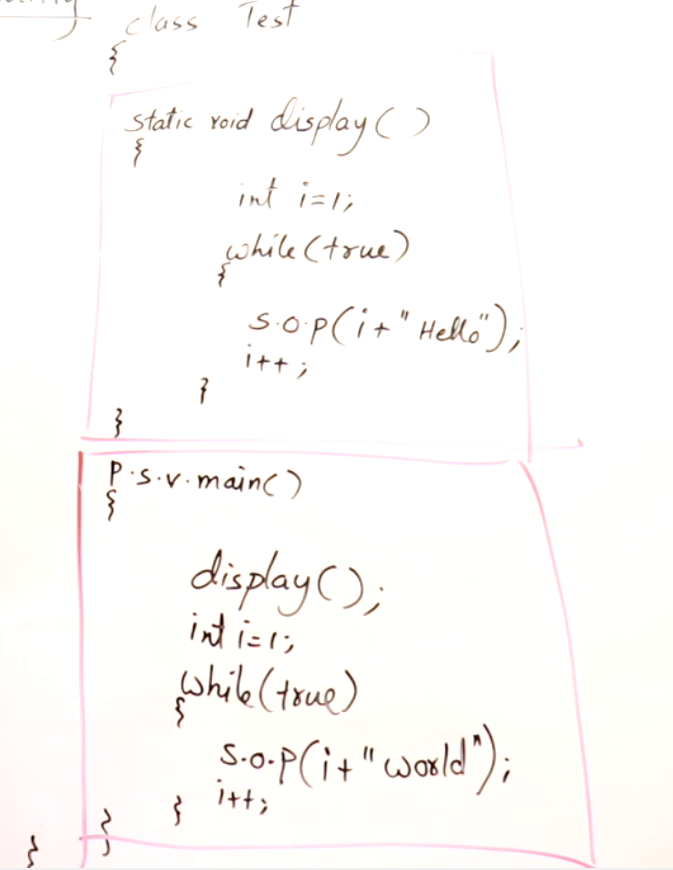 class Test
{
static void display()
{
int i=1;
while(true)
{
s.o.p(i+"Hello");
i++;
}
}
p.s.v.main()
{
display();
int i=1;
while(true)
{
s.o.p(i+"world");
i++;
}
}
}